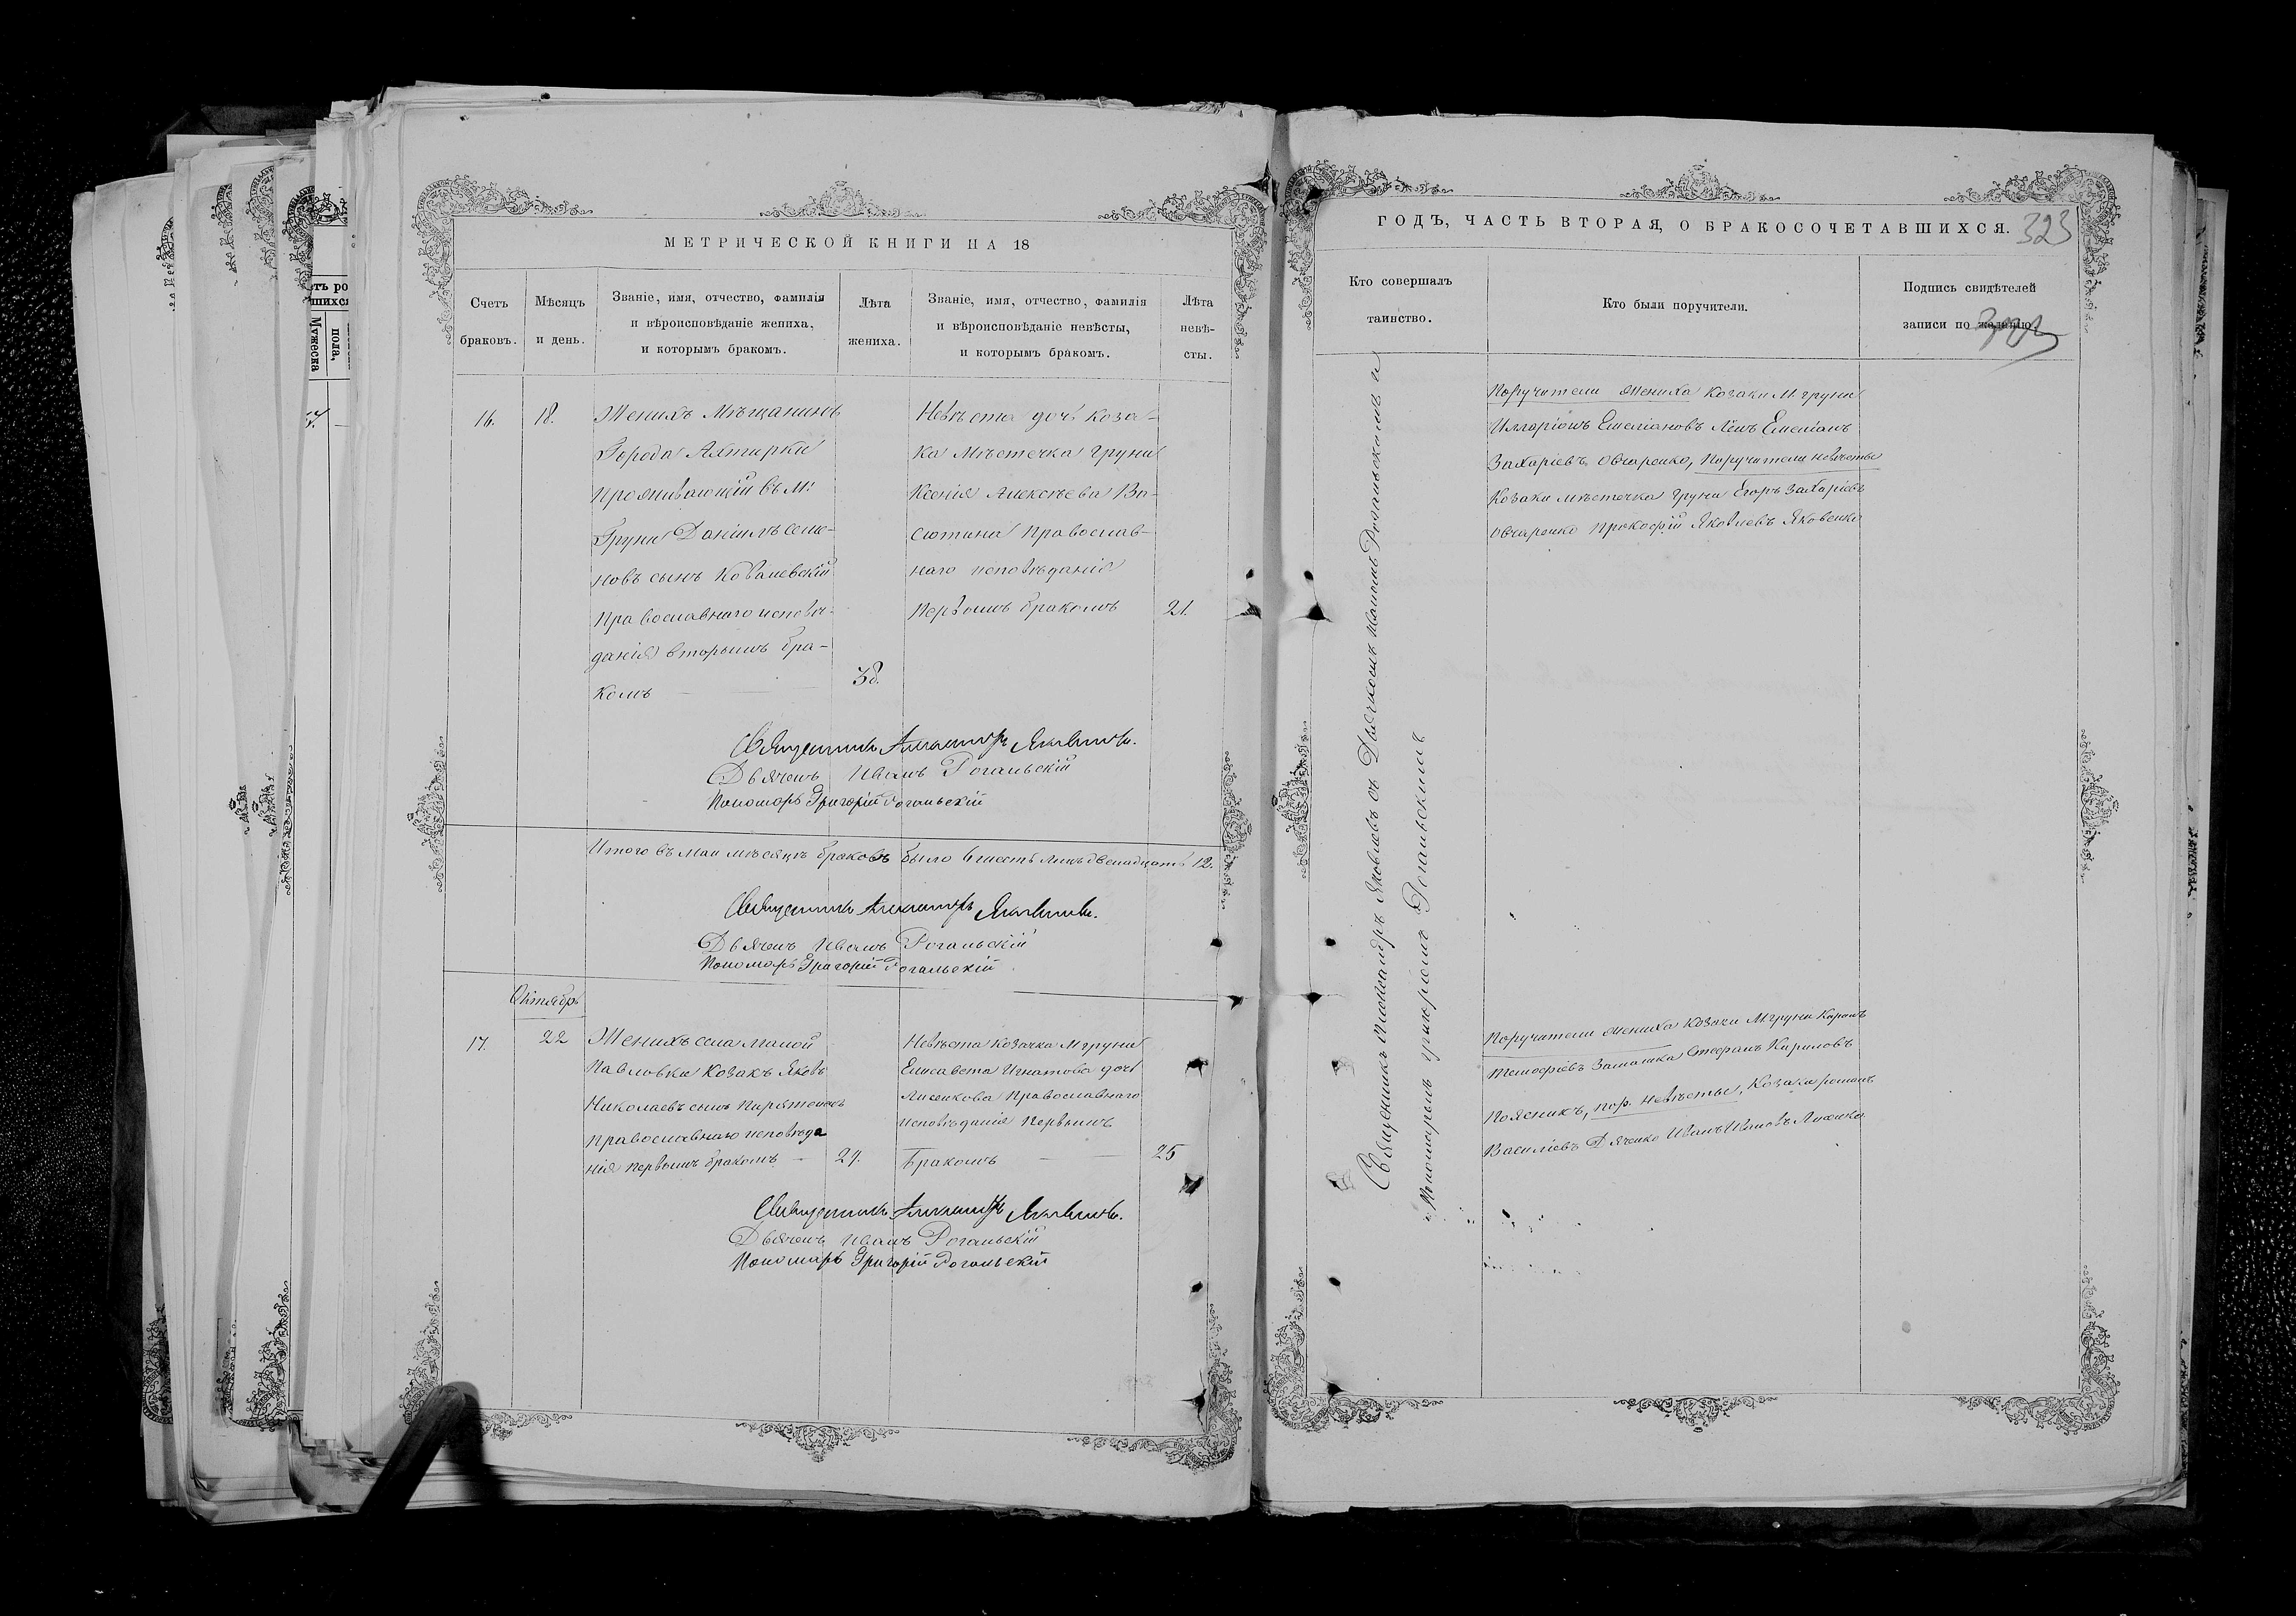 МЕТРИЧЕСКОЙ КНИГИ НА 18
Счетъ браковъ.
Мѣсяцъ и день.
Званіе, имя, отчество, фамилія
и вѣроисповѣданіе жениха,
и которымъ бракомъ.
Лѣта жениха.
Званіе, имя, отчество, фамилія
и вѣроисповѣданіе невѣсты,
и которымъ бракомъ.
Лѣта невѣ-
сты.
16.
18.
Женихъ Мѣщанинъ
Города Ахтирки
Проживающій въ М:
Груни Даніилъ Семе-
новъ сынъ Ковалевскій
Православнаго исповѣ-
данія вторымъ бра-
комъ
38.
Невѣста дочь Коза-
ка Мѣстечка Груни
Ксенія Алексѣева Ва-
сютина Православ-
наго исповѣданія
Первымъ бракомъ
21.
Священникъ Александръ Яковлевъ.
Дьячекъ Иванъ Рогальскій
Пономарь Григорій Рогальскій
Итого въ Маи мѣсяцѣ браковъ было 6 шесть лицъ двенадцать 12.
Священникъ Александръ Яковлевъ.
Дьячекъ Иванъ Рогальскій
Пономарь Григорій Рогальскій
Октябрь
17.
22
Женихъ села Малой
Павловки Козакъ Яковъ
Николаевъ сынъ
Православнаго исповѣда
нія первымъ бракомъ
24.
Невѣста Козачка М Груни
Елисавета Игнатова дочь
Лисенкова Православнаго
исповѣданія Первымъ
Бракомъ
25
Священникъ Александръ Яковлевъ.
Дьячекъ Иванъ Рогальскій
Пономарь Григорій Рогальскій
ГОДЪ, ЧАСТЬ ВТОРАЯ, О БРАКОСОЧЕТАВШИХСЯ.
323
Кто совершалъ
таинство.
Кто были поручители.
Подпись свидѣтелей
записи по желанію.
Священникъ Александръ Яковлевъ съ Дьячкомъ Иваномъ Рогальскимъ и
Пономаремъ Григоріемъ Рогальскимъ
Поручители жениха Козаки М. Груни
Илларіонъ Емеліановъ Емеліанъ
Захаріевъ Овчаренко, Поручители невѣсты
Козаки мѣстечка Груни Егоръ Захаріевъ
Овчаренко Прокофій Яковлевъ Яковенко
Поручители жениха Козаки М Груни
Тимофіевъ Стефанъ Кириловъ
Поясникъ, пор. невѣсты, Козаки Романъ
Василіевъ Дяченко Иванъ